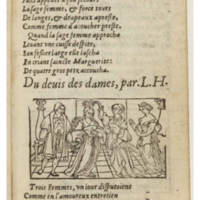 La sage femme, & force tours
De langes, & drapeaux apreste,
Comme femme d'acoucher preste.
Quand la sage femme approcha
Levant une cuisse
Son fessier large elle lascha
En criant saincte Marguerite:
De quatre gros petz acoucha.
Du devis des dames, par. L. H.
Trois femmes, un iour disputoient
Comme en l'amoureux entretien